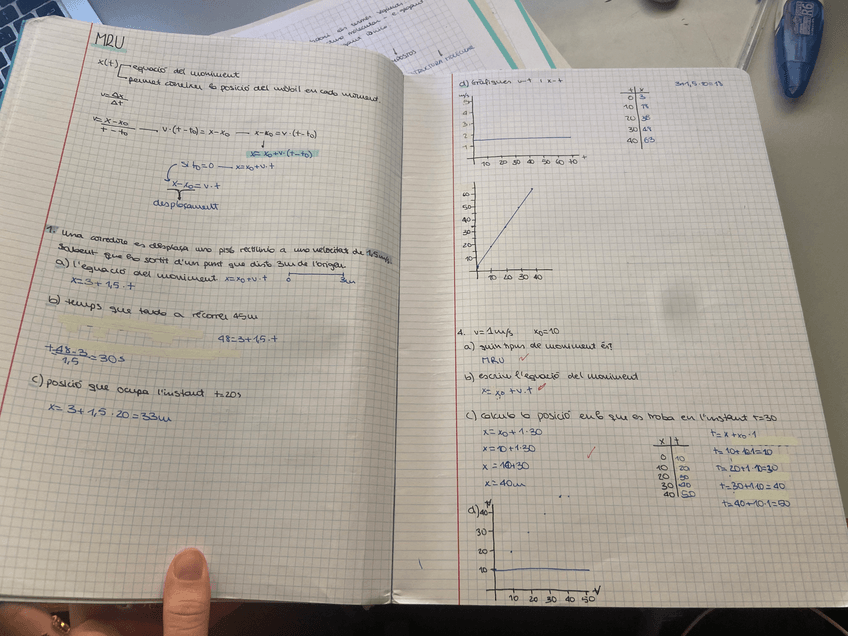 MRU
x(t) equació del moviment
permet conèixer la posició del mòbil en cada moment.
v=Δx
Δt
v=x-x₀
t-t₀
v·(t-t₀)=x-x₀
x-x₀=v·(t-t₀)
x=x₀+v·(t-t₀)
si t₀=0
x=x₀+v.t
x-x₀=v.t
desplaçament
1. Una corredora es desplaça una pista rectilínia a una velocitat de 1,5m/s.
Sabent que ha sortit d'un punt que dista 3m de l'origen
a) l'equació del moviment x=x₀+v.t
0 3m
x=3+1,5.t
b) temps que tarda a recórrer 45m
48=3+1,5.t
t=48-3
1,5
=30s
c) posició que ocupa l'instant t=20s
x=3+1,5.20=33m
d) gràfiques v-t i x-t
3+1,5.10=18
t x
0 3
10 18
20
30 48
40 63
m/s
5
4
3
2
1
10 20 30 40 50 60 70 t
60
50
40
30
20
10
10 20 30 40
4. v=1m/s x₀=10
a) quin tipus de moviment és?
MRU
b) escriu l'equació del moviment
x=x₀+v.t
c) calcula la posició en la que es troba en l'instant t=30
x=x₀+1.30
x=10+1.30
x=10+30
x=40m
x t
0 10
10 20
20 30
30 40
40 50
t=x+x₀.1
t=20+1.10=30
t=30+1.10=40
t=40+10.1=50
d)
40
30
20
10
10 20 30 40 50
V
ESTRUCTURA MOLECULAR